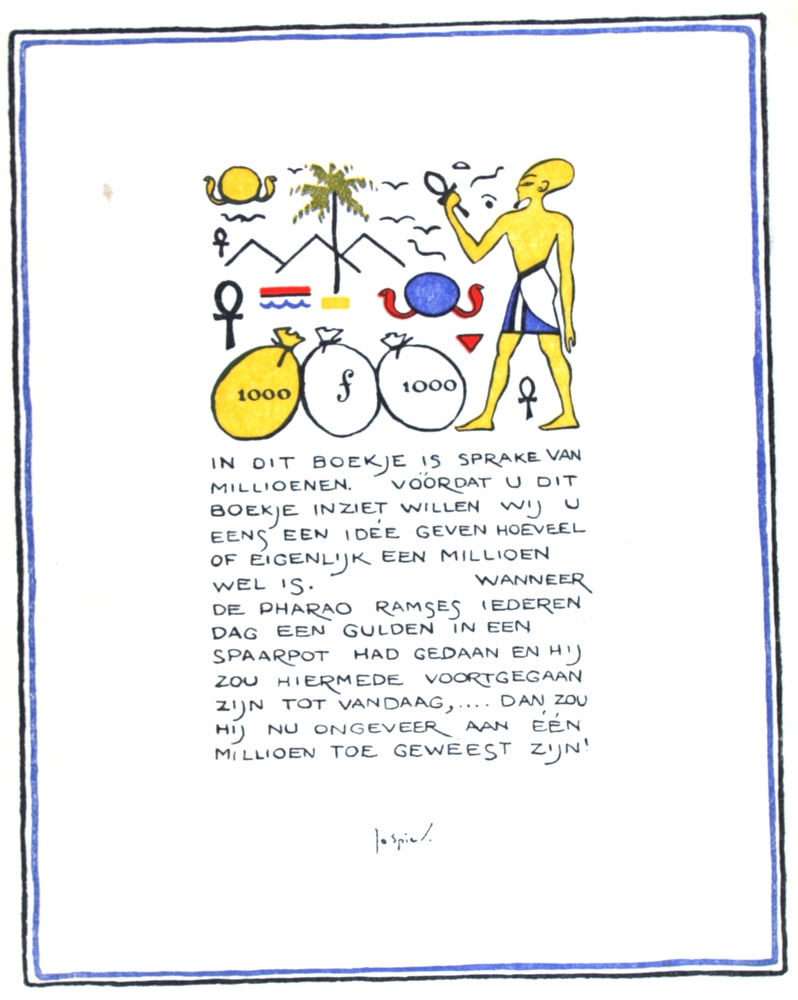 1000 f 1000
IN DIT BOEKJE IS SPRAKE VAN
MILLIOENEN. VÓÓRDAT U DIT
BOEKJE INZIET WILLEN WIJ U
EENS EEN IDÉE GEVEN HOEVEEL
OF EIGENLIJK EEN MILLIOEN
WEL IS. WANNEER
DE PHARAO RAMSES IEDEREN
DAG EEN GULDEN IN EEN
SPAARPOT HAD GEDAAN EN HIJ
ZOU HIERMEDE VOORTGEGAAN
ZIJN TOT VANDAAG,.... DAN ZOU
HIJ NU ONGEVEER AAN ÉÉN
MILLIOEN TOE GEWEEST ZIJN!
Jo Spier.